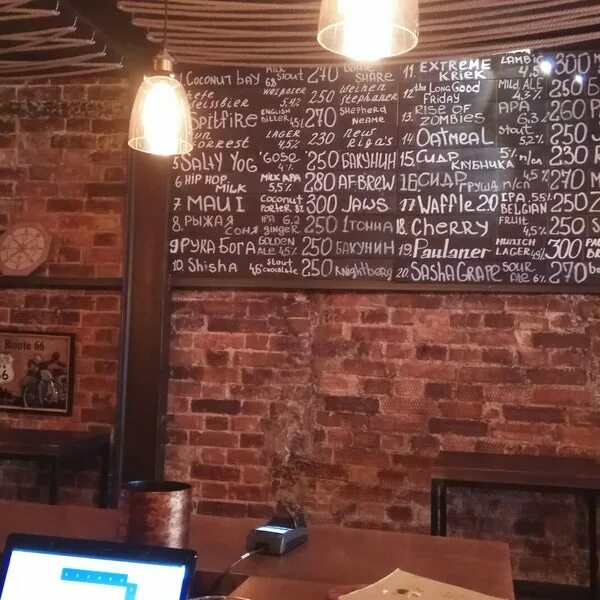 1. Coconut bay MILK stout 6,8 270 SHARE
hefe Weissbier 5,4% 250 weihen stephaner
Spitfire ENGLISH BITTER 4,5% 270 Shepherd neame
LAGER 4,5% 230 new Riga's
5 Salty Yog GOSE 4% 250 БАКУНИН
6 HIP HOP MILK MILK APA 5,5% 280 AF BREW
7 MAUI Coconut PORTER 300 JAWS
8. РЫЖАЯ СОНЯ IPA 6,2 ginger 250 1 ТОННА
9 РУКА БОГА GOLDEN ALE 4,5% 250 БАКУНИН
10. Shisha stout chocolate 4,6 250 Knightberg
11. EXTREME Kriek LAMBIC 4,5 300
12. the Long Good FRIDAY Mild ALE 4,3% 250
13. RISE OF ZOMBIES APA 6,3 260
14 OATMEAL stout 5,2% 250
15. СИДР КЛУБНИКА 5% п/сл 230
16. СИДР ГРУША п/сл 4,5% 270
17 WAFFLE 2.0 IPA 5,5% BELGIAN 250
18. CHERRY FRUIT 4,5% 250
19. Paulaner MUNICH LAGER 4,9% 300
20. SASHA GRAPE SOUR ALE 6% 270
Route 66